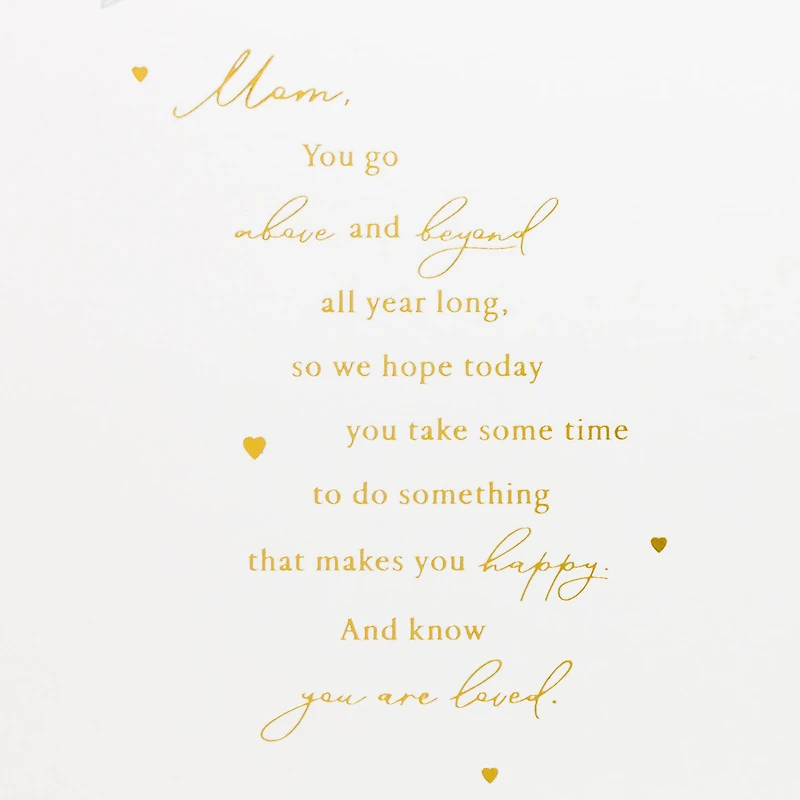 Mom,
You go
above and beyond
all year long,
so we hope today
you take some time
to do something
that makes you happy.
And know
you are loved.